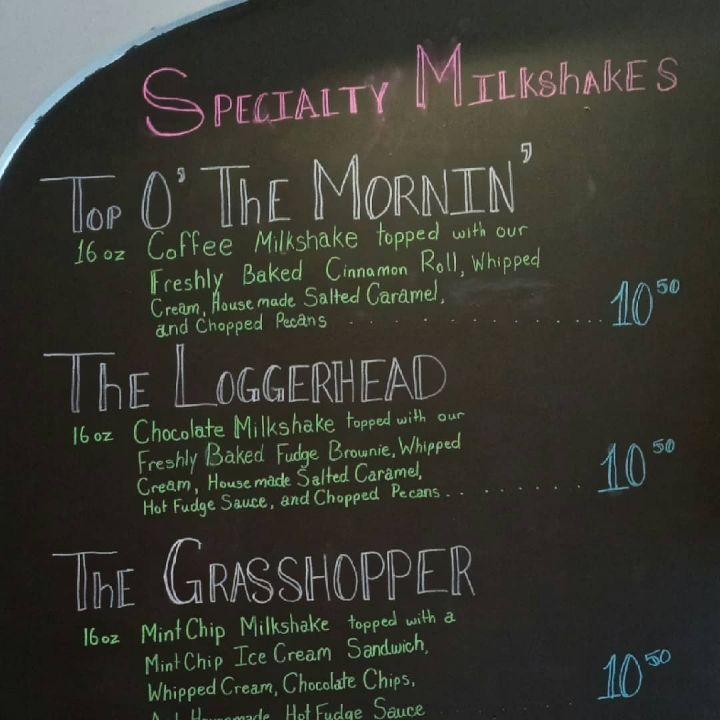 Specialty Milkshakes
Top O' The Mornin'
16 oz Coffee Milkshake topped with our
Freshly Baked Cinnamon Roll, Whipped
Cream, House made Salted Caramel,
and Chopped Pecans . . . . . . . . . . . . . . 10 50
The Loggerhead
16 oz Chocolate Milkshake topped with our
Freshly Baked Fudge Brownie, Whipped
Cream, House made Salted Caramel,
Hot Fudge Sauce, and Chopped Pecans . . . . . . . . 10 50
The Grasshopper
16 oz Mint Chip Milkshake topped with a
Mint Chip Ice Cream Sandwich,
Whipped Cream, Chocolate Chips, 10 50
And Homemade Hot Fudge Sauce